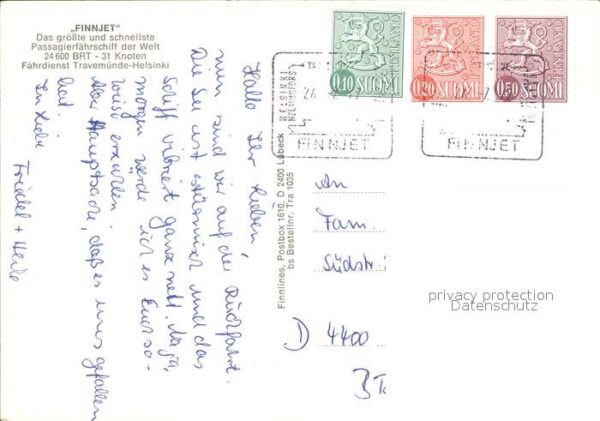 „FINNJET"
Das größte und schnellste
Passagierfährschiff der Welt
24 600 BRT - 31 Knoten
Fährdienst Travemünde-Helsinki
Hallo Ihr Lieben,
nun sind wir auf der Rückfahrt.
Die See ist stürmisch und das
Schiff vibriert ganz nett. Na ja,
morgen werde ich es Euch so-
wieso erzählen.
Die Hauptsache, daß es uns gefallen
hat!
In Liebe
Friedel + Heide
Finnlines, Postbox 1610, D 2400 Lübeck
bs Bestellnr. Tra 1035
0,10 SUOMI
0,20 SUOMI
0,50 SUOMI
HELSINKI
HELSINGFORS
FINNJET
FINNJET
An
Fam.
Südstr.
D 4400
privacy protection
Datenschutz